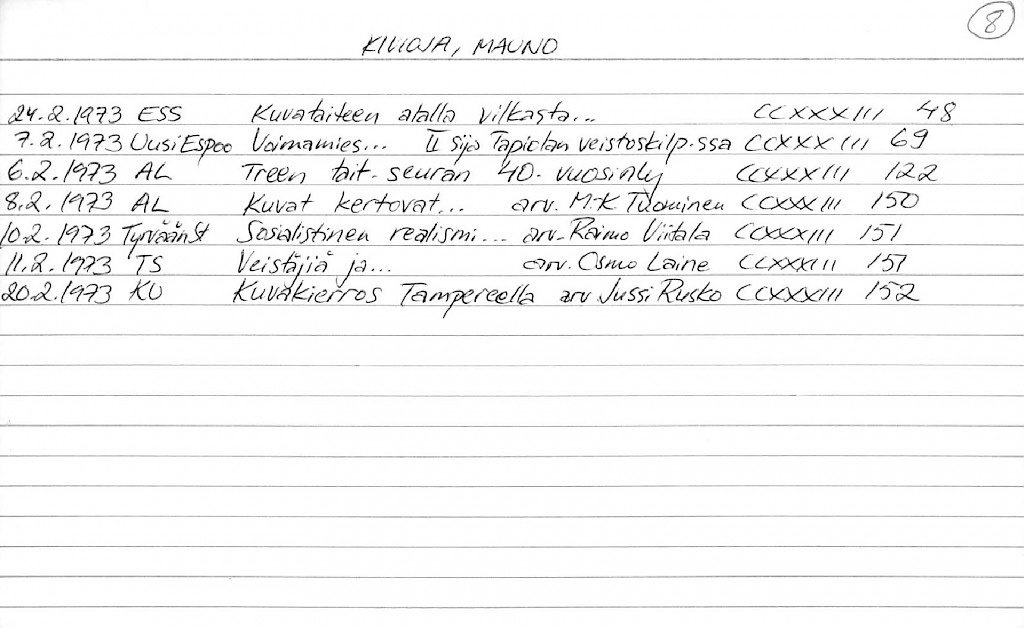 8
KIVIOJA, MAUNO
24.2.1973 ESS Kuvataiteen alalla vilkasta... CCXXXIII 48
7.2.1973 Uusi Espoo Voimamies... II sija Tapiolan veistoskilp.ssa CCXXXIII 69
6.2.1973 AL Treen tait-seuran 40-vuosinly CCXXXIII 122
8.2.1973 AL Kuvat kertovat... arv. M-K Tuominen CCXXXIII 150
10.2.1973 TyrväänSt Sosialistinen realismi... arv. Raimo Viitala CCXXXIII 151
11.2.1973 TS Veistäjiä ja... arv. Osmo Laine CCXXXIII 151
20.2.1973 KU Kuvakierros Tampereella arv Jussi Rusko CCXXXIII 152